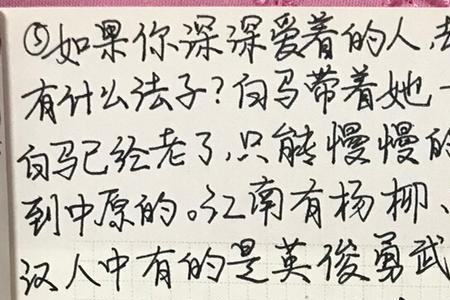 ⑤如果你深深爱着的人,去
有什么法子?白马带着她一
白马已经老了,只能慢慢的
到中原的。江南有杨柳、
汉人中有的是英俊勇武